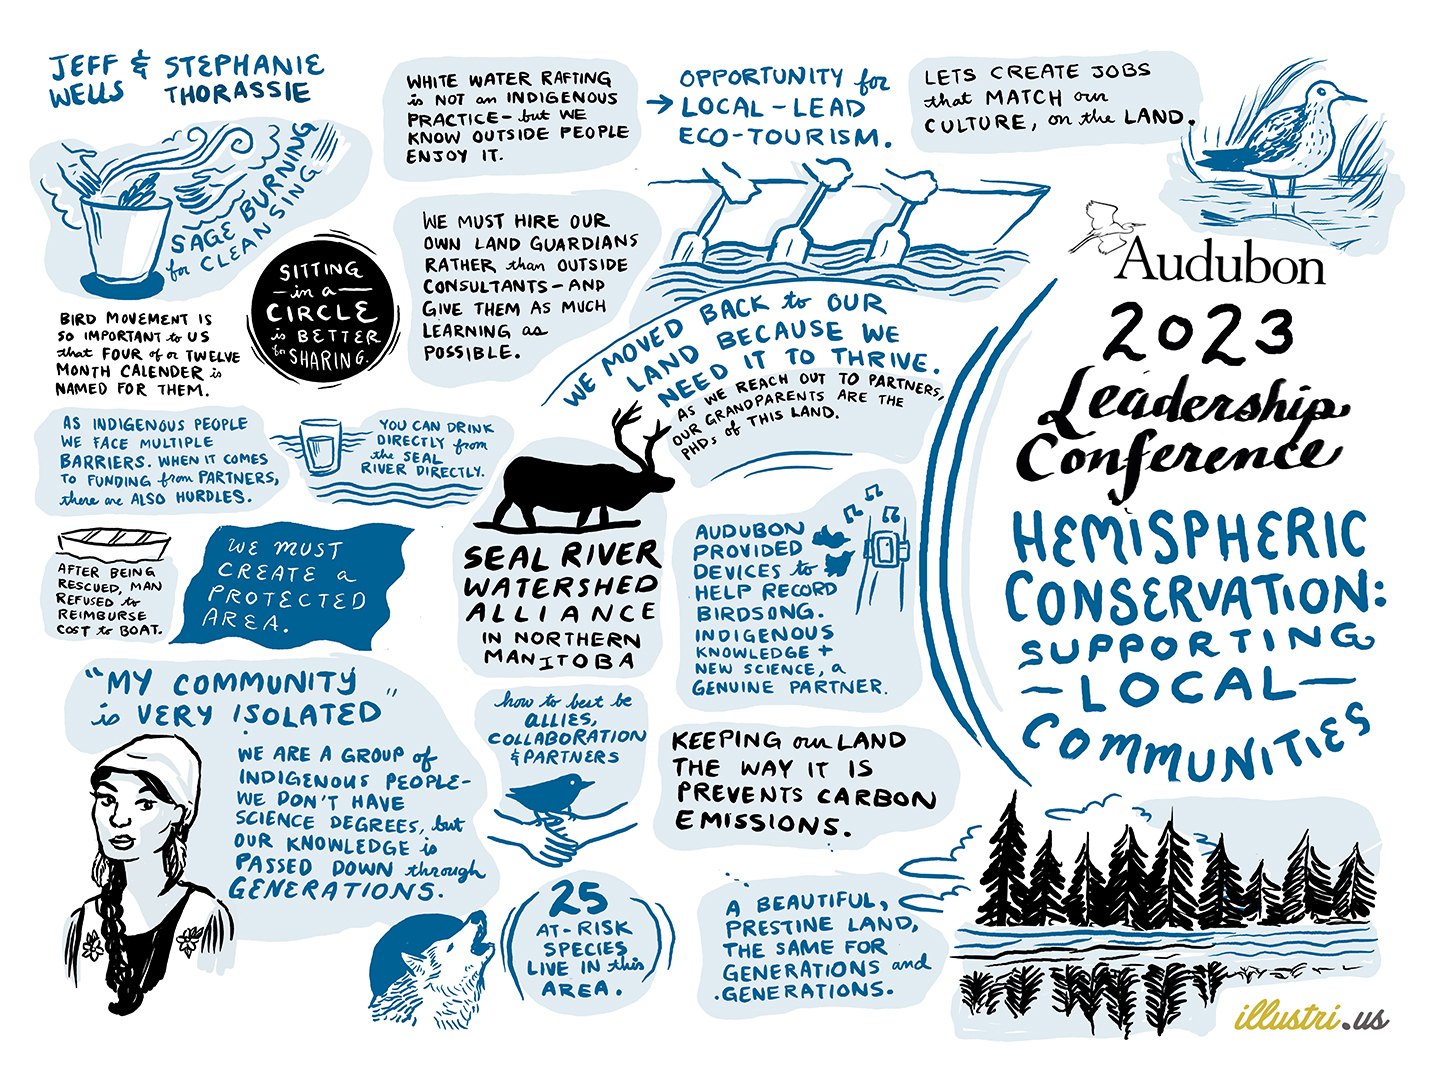 JEFF & STEPHANIE
WELLS THORASSIE
SAGE BURNING
for CLEANSING
SITTING
in a
CIRCLE
is BETTER
for SHARING.
BIRD MOVEMENT IS
SO IMPORTANT to US
that FOUR of a TWELVE
MONTH CALENDER is
NAMED FOR THEM.
AS INDIGENOUS PEOPLE
WE FACE MULTIPLE
BARRIERS. WHEN IT COMES
TO FUNDING from PARTNERS,
there are ALSO HURDLES.
YOU CAN DRINK
DIRECTLY from
the SEAL
RIVER DIRECTLY.
AFTER BEING
RESCUED, MAN
REFUSED to
REIMBURSE
COST to BOAT.
WE MUST
CREATE a
PROTECTED
AREA.
"MY COMMUNITY
is VERY ISOLATED"
WE ARE A GROUP of
INDIGENOUS PEOPLE-
WE DON'T HAVE
SCIENCE DEGREES, but
OUR KNOWLEDGE is
PASSED DOWN through
GENERATIONS.
WHITE WATER RAFTING
is NOT an INDIGENOUS
PRACTICE- but WE
KNOW OUTSIDE PEOPLE
ENJOY IT.
OPPORTUNITY for
→ LOCAL-LEAD
ECO-TOURISM.
LETS CREATE JOBS
that MATCH our
CULTURE, on the LAND.
WE MUST HIRE OUR
OWN LAND GUARDIANS
RATHER than OUTSIDE
CONSULTANTS-AND
GIVE THEM AS MUCH
LEARNING as
POSSIBLE.
WE MOVED BACK to OUR
LAND BECAUSE WE
NEED IT TO THRIVE.
AS WE REACH OUT TO PARTNERS,
OUR GRANDPARENTS ARE THE
PHDs of THIS LAND.
SEAL RIVER
WATERSHED
ALLIANCE
IN NORTHERN
MANITOBA
AUDUBON
PROVIDED
DEVICES to
HELP RECORD
BIRDSONG.
INDIGENOUS
KNOWLEDGE +
NEW SCIENCE, a
GENUINE PARTNER.
how to best be
ALLIES,
COLLABORATION
& PARTNERS
KEEPING our LAND
THE WAY IT IS
PREVENTS CARBON
EMISSIONS.
25
AT-RISK
SPECIES
LIVE IN this
AREA.
A BEAUTIFUL,
PRESTINE LAND,
THE SAME FOR
GENERATIONS and
GENERATIONS.
Audubon
2023
Leadership
Conference
HEMISPHERIC
CONSERVATION:
SUPPORTING
-LOCAL-
COMMUNITIES
illustri.us